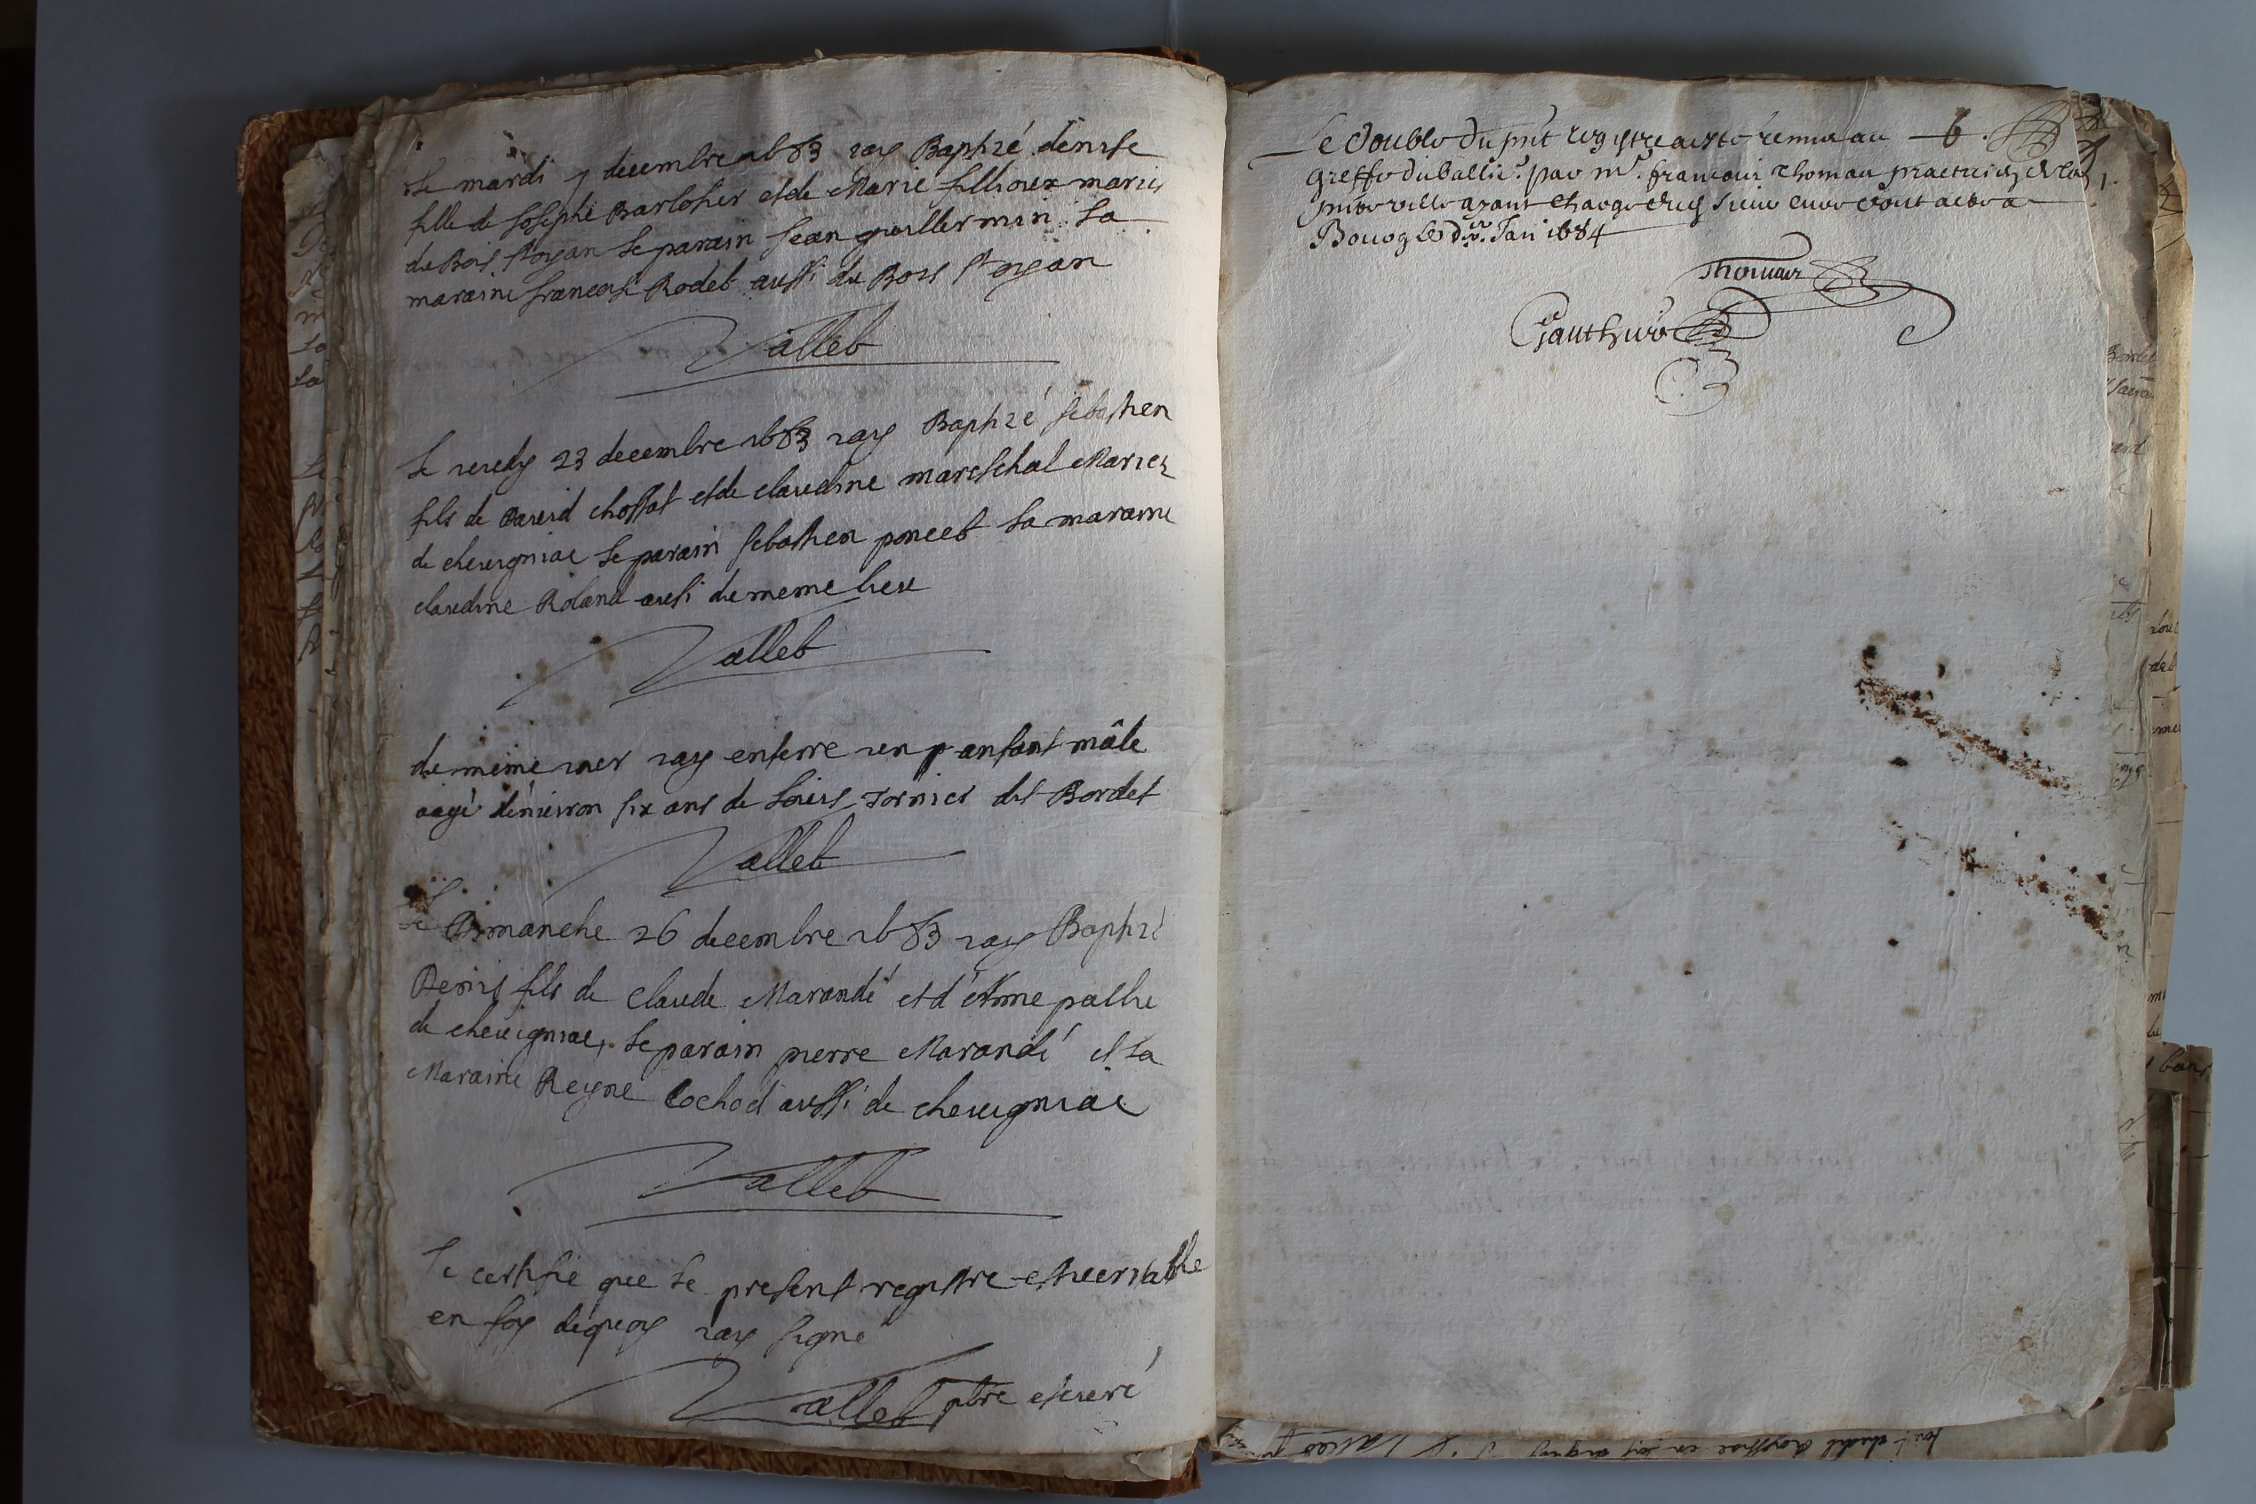 Le mardi 7 decembre 1683 iay Baptzé denise
fille de Josephe Barlother et de Marie fillioux mariés
du Bois st oyan Le parain Jean guillermin La
maraine francoise Rodet aussi du Bois st oyan
Vallet
Le jeudy 23 decembre 1683 iay Baptzé sebastien
fils de David chossat et de claudine mareschal Mariez
de cheuigniac Le parain sebastien poncet La maraine
claudine Roland aussi du meme lieu
Vallet
du méme iour iay enterré un enfant mâle
aagé dénuiron six ans de Louis Tornier dit Bordet
Vallet
Le Dimanche 26 decembre 1683 iay Baptzé
Denis fils de Claude Marandé et d'étiennne
de cheuigniac, Le parain pierre Marandé et La
Maraine Reyne Cochod aussi de cheuigniac
Vallet
Je certifie que Le present registre est ueritable
en foy dequoy iay signé
Vallet ptre et curé
Le double du pnt registre a esté remis au 6.
greffe du balli. par mr. francois Thomas practicien de la
pnte ville ayant charge du sieur curé dont acte a
Bourg le dr. Jan 1684
Thomas
Gauthier